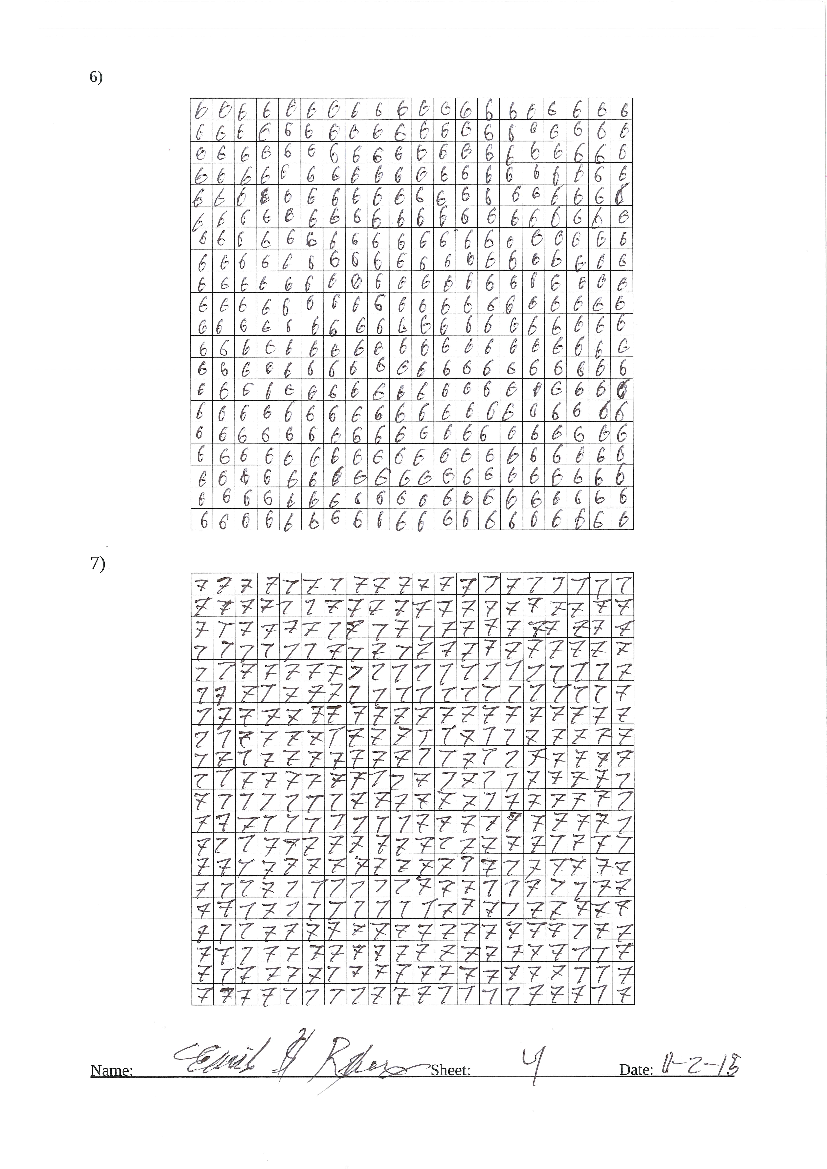 6)
6 6 6 6 6 6 6 6 6 6 6 6 6 6 6 6 6 6 6 6
6 6 6 6 6 6 6 6 6 6 6 6 6 6 6 6 6 6 6 6
6 6 6 6 6 6 6 6 6 6 6 6 6 6 6 6 6 6 6 6
6 6 6 6 6 6 6 6 6 6 6 6 6 6 6 6 6 6 6 6
6 6 6 6 6 6 6 6 6 6 6 6 6 6 6 6 6 6 6 6
6 6 6 6 6 6 6 6 6 6 6 6 6 6 6 6 6 6 6 6
6 6 6 6 6 6 6 6 6 6 6 6 6 6 6 6 6 6 6 6
6 6 6 6 6 6 6 6 6 6 6 6 6 6 6 6 6 6 6 6
6 6 6 6 6 6 6 6 6 6 6 6 6 6 6 6 6 6 6 6
6 6 6 6 6 6 6 6 6 6 6 6 6 6 6 6 6 6 6 6
6 6 6 6 6 6 6 6 6 6 6 6 6 6 6 6 6 6 6 6
6 6 6 6 6 6 6 6 6 6 6 6 6 6 6 6 6 6 6 6
6 6 6 6 6 6 6 6 6 6 6 6 6 6 6 6 6 6 6 6
6 6 6 6 6 6 6 6 6 6 6 6 6 6 6 6 6 6 6 6
6 6 6 6 6 6 6 6 6 6 6 6 6 6 6 6 6 6 6 6
6 6 6 6 6 6 6 6 6 6 6 6 6 6 6 6 6 6 6 6
6 6 6 6 6 6 6 6 6 6 6 6 6 6 6 6 6 6 6 6
6 6 6 6 6 6 6 6 6 6 6 6 6 6 6 6 6 6 6 6
6 6 6 6 6 6 6 6 6 6 6 6 6 6 6 6 6 6 6 6
6 6 6 6 6 6 6 6 6 6 6 6 6 6 6 6 6 6 6 6
7)
7 7 7 7 7 7 7 7 7 7 7 7 7 7 7 7 7 7 7 7
7 7 7 7 7 7 7 7 7 7 7 7 7 7 7 7 7 7 7 7
7 7 7 7 7 7 7 7 7 7 7 7 7 7 7 7 7 7 7 7
7 7 7 7 7 7 7 7 7 7 7 7 7 7 7 7 7 7 7 7
7 7 7 7 7 7 7 7 7 7 7 7 7 7 7 7 7 7 7 7
7 7 7 7 7 7 7 7 7 7 7 7 7 7 7 7 7 7 7 7
7 7 7 7 7 7 7 7 7 7 7 7 7 7 7 7 7 7 7 7
7 7 7 7 7 7 7 7 7 7 7 7 7 7 7 7 7 7 7 7
7 7 7 7 7 7 7 7 7 7 7 7 7 7 7 7 7 7 7 7
7 7 7 7 7 7 7 7 7 7 7 7 7 7 7 7 7 7 7 7
7 7 7 7 7 7 7 7 7 7 7 7 7 7 7 7 7 7 7 7
7 7 7 7 7 7 7 7 7 7 7 7 7 7 7 7 7 7 7 7
7 7 7 7 7 7 7 7 7 7 7 7 7 7 7 7 7 7 7 7
7 7 7 7 7 7 7 7 7 7 7 7 7 7 7 7 7 7 7 7
7 7 7 7 7 7 7 7 7 7 7 7 7 7 7 7 7 7 7 7
7 7 7 7 7 7 7 7 7 7 7 7 7 7 7 7 7 7 7 7
7 7 7 7 7 7 7 7 7 7 7 7 7 7 7 7 7 7 7 7
7 7 7 7 7 7 7 7 7 7 7 7 7 7 7 7 7 7 7 7
7 7 7 7 7 7 7 7 7 7 7 7 7 7 7 7 7 7 7 7
7 7 7 7 7 7 7 7 7 7 7 7 7 7 7 7 7 7 7 7
Name: Sheet: 4 Date: 11-2-15